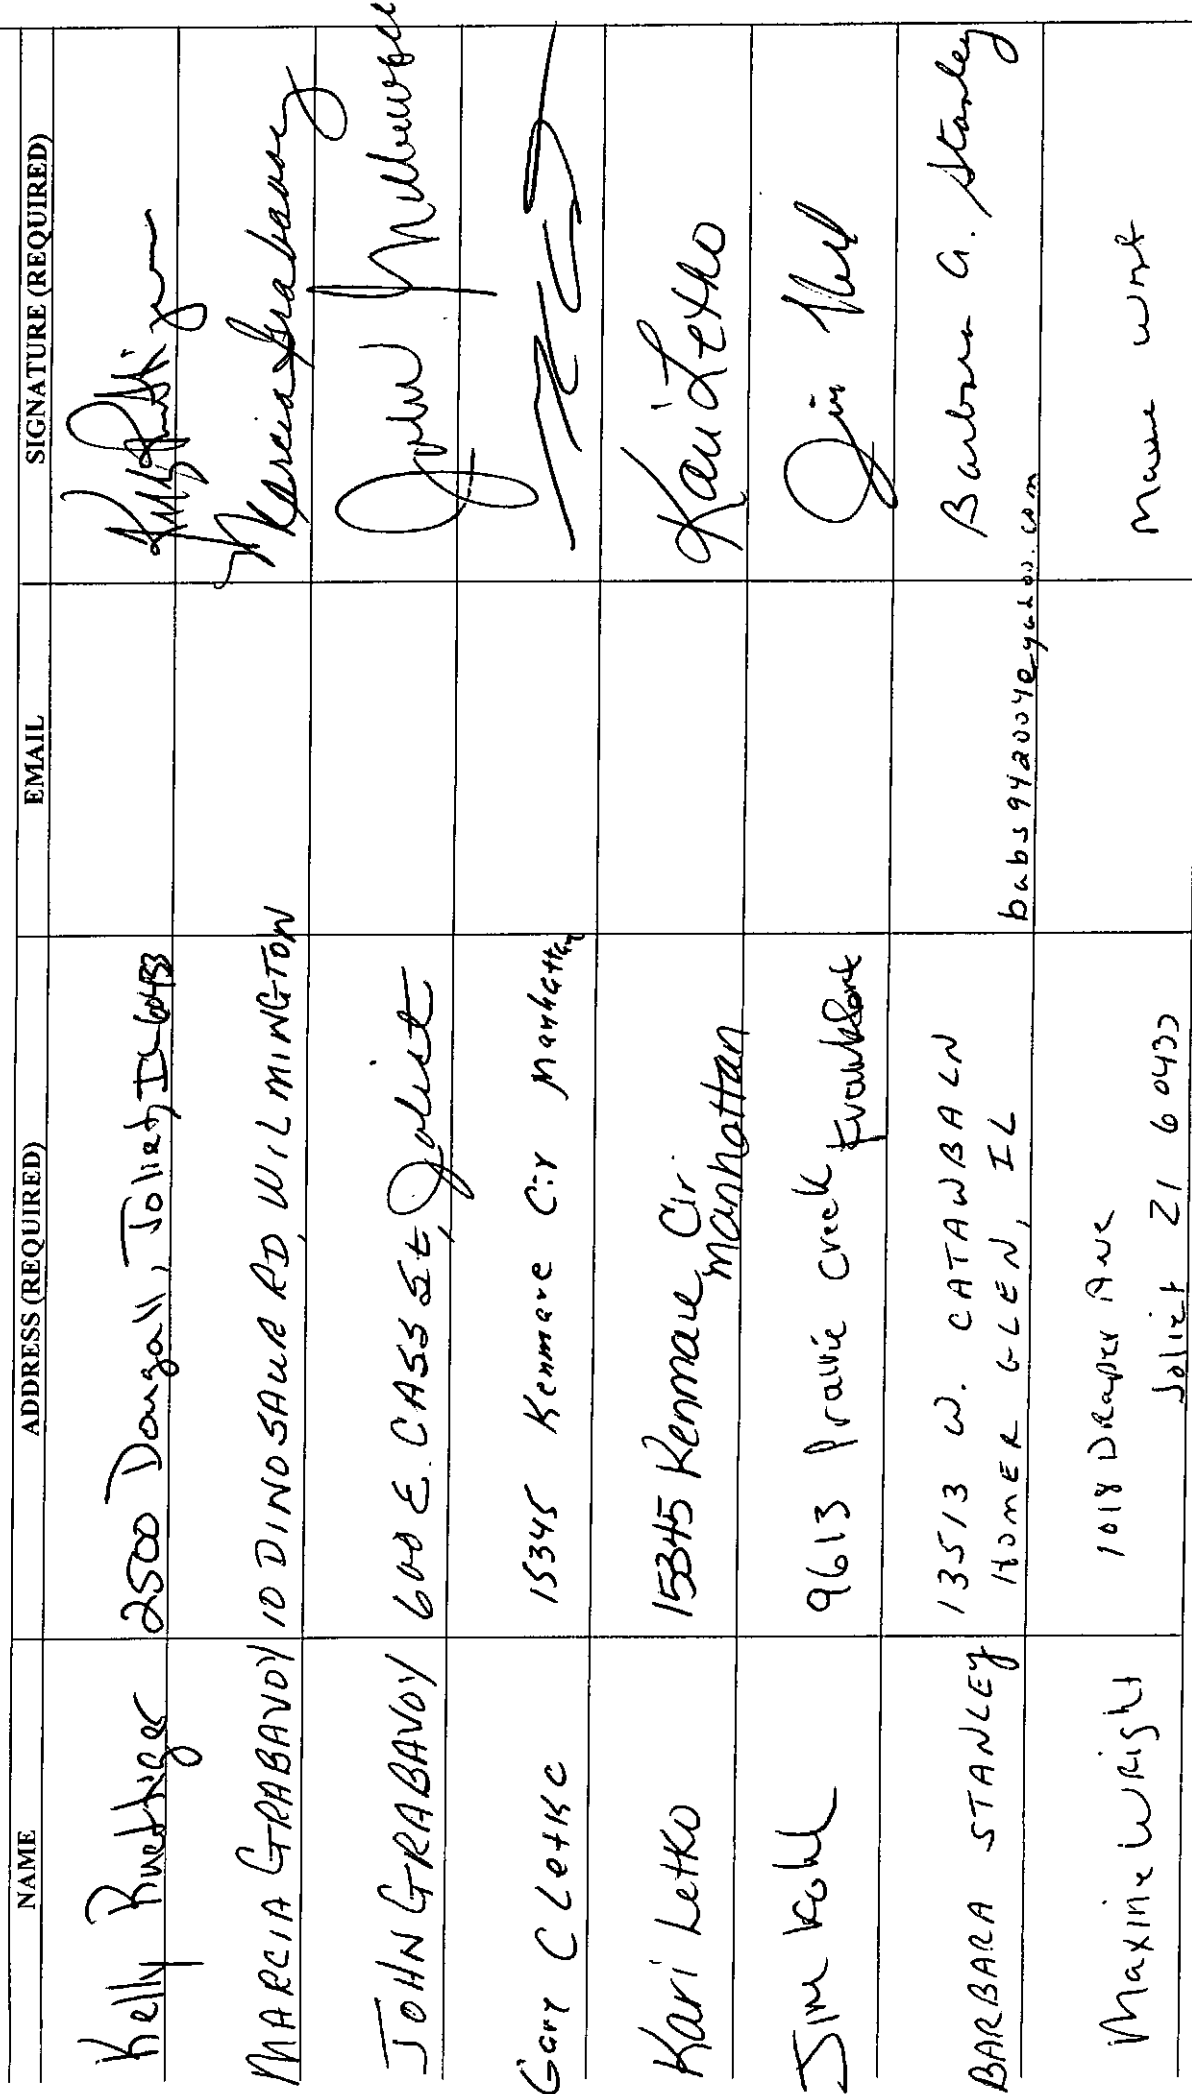 NAME ADDRESS (REQUIRED) EMAIL SIGNATURE (REQUIRED)
Kelly Ruettiger 2500 Dougall, Joliet, IL 60433
MARCIA GRABAVOY 10 DINOSAUR RD, WILMINGTON Marcia Grabavoy
JOHN GRABAVOY 600 E. CASS St, Joliet John
Gary C Letkc 15345 Kenmare Cir Manhattan
Kari Letko 15345 Kenmare Cir. Kari Letko
Manhattan
Jim Kohl 9613 Prairie Creek Frankfort Jim
BARBARA STANLEY 13513 W. CATAWBA LN Barbara A. Stanley
HOMER GLEN, IL babs942004@yahoo.com
Maxine Wright 1018 Draper Ave
Joliet Il 60433